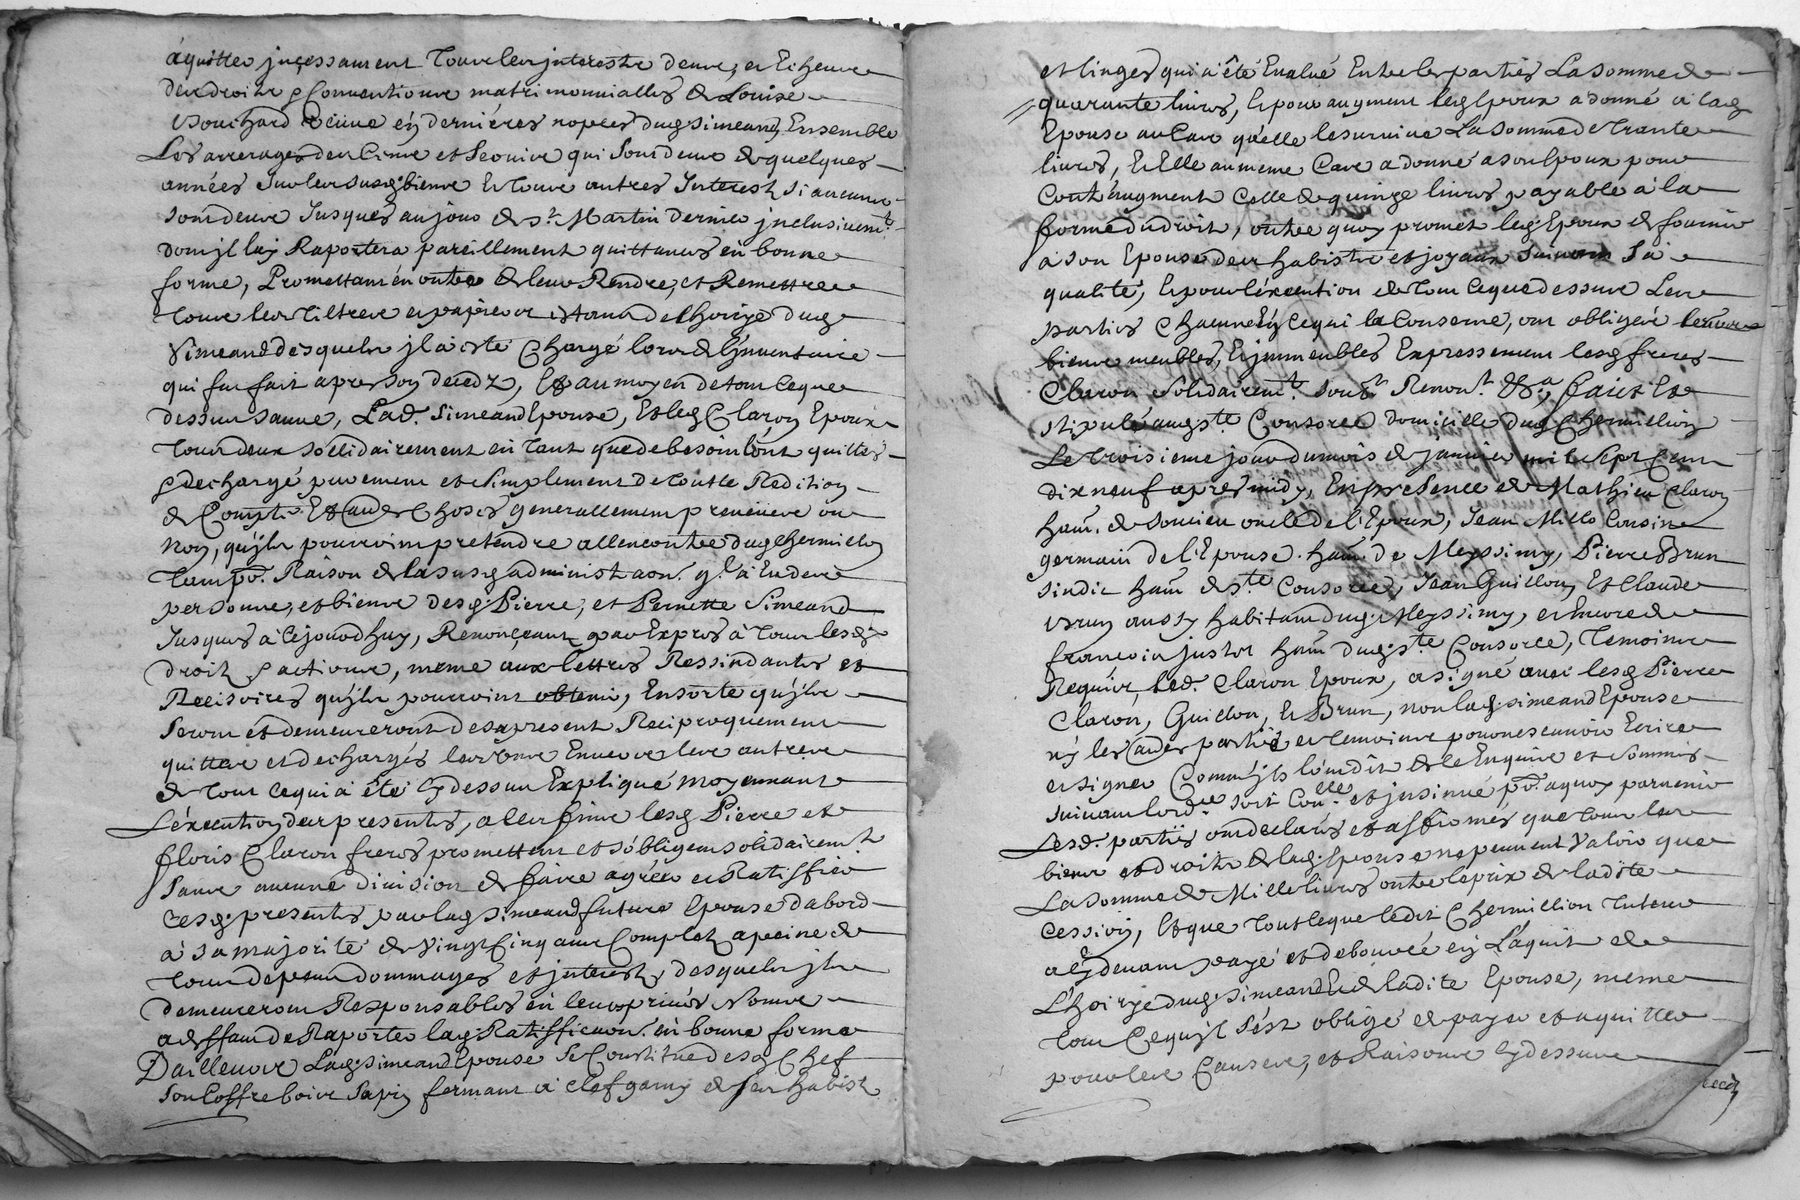 aquitter incessament tous les interests deus, et Echeus
des droits & Conventions matrimonialles de Louise
Bouchard veuve en dernieres nopces dud Simeand, Ensemble
Les arrerages des Cens et Servis qui sont deus de quelques
années sur les susd biens Et tous autres Interest si aucuns
sont deus Jusques au jour de St Martin dernier inclusivemt
dont jl luy Raportera pareillement quittances en bonne
forme, Promettant en outre de leur Rendre, et Remettre
tous les tiltres et papiers estant de lhoirye dud
Simeand desquels jl a esté Chargé lors de l'jnventaire
qui fut fait apres son deced, Et au moyen de tout ceque
dessus sauve, Lad. Simeand Epouse, Et led Claron Epoux
tous deux sollidairement en tant que de besoin l'ont quitté
& dechargé purement et simplement de toutte Redition
de Compte Et autres Choses generallement preveues ou
Non, qu'jls pourroint pretendre allencontre dud Chermillon
pour Raison de la susd administraon. gle a Eu des
personnes, et biens desd. Pierre, et Pernette Simeand
Jusques à cejourdhuy, Renonceant par Expres à tous lesd
droits & actions, meme aux lettres Ressindantes et
Recisoires qu'jls pourroint obtenir, Ensorte qu'jls
seront et demeureront des apresent Reciproquement
quittes et dechargés les uns Envers les autres
de tout cequi a été cy dessus Expliqué moyennant
L'execution des presentes, a ces fins lesd Pierre et
floris Claron freres promettent et s'obligent solidairemt
sans aucune division de faire agréer et Ratiffier
cesd. presentes par lad Simeand future Epouse dabord
à sa majorité de vingt Cinq ans Complets apeine de
tous depens dommages et interests, desquels jls
demeureront Responsables en leurs privés Noms
a deffaut de Raporter lad Ratifficaon. en bonne forme
D'ailleurs Lad. Simeand Epouse se Constitue de son Chef
son Coffre bois sapin fermant a clef garny de ses habits
et linges qui a été Evalué Entre les parties La somme de
quarante livres, Et pour augment led Epoux a donné a lad
Epouse au Cas qu'elle le survive La somme de trante
livres, Et Elle au meme Cas a donné a son Epoux pour
Contr'augment Celle de quinze livres payable à la
forme du droit, outre quoy promet led. Epoux de fournir
a son Epouse des habits et joyaux suivant sa
qualité, Et pour l'execution de tout ceque dessus Les
parties Chacune En cequi la Conserne, ont obligéé leurs
biens meubles, Et jmmeubles Expressement lesd freres
Claron solidairemt. soubt Renont. &a, fait Et
stipulé aud Ste Consorce domicille dud Chermillion
Le troisieme jour du mois de janvier mil sept Cent
dix neuf apres midy, En presence de Mathieu Claron
hant. de Soucieu oncle de l'Epoux, Jean Millo Cousin
germain de l'Epouse hant. de Meyssimy, Pierre Brun
sindic hant de Ste Consorce, Jean Guillon, Et Claude
Brun aussy habitant dud. Meyssimy, et Encore de
francois justet hant dud. Ste Consorce, temoins
Requis, led. Claron Epoux, a signé avec lesd Pierre
Claron, Guillon, Et Brun, non lad. Simeand Epouse
ny les autres parties et temoins pour ne scavoir Ecrire
et signer Comm'jls l'ont dit de ce Enquis et sommés
suivant lordce soit Conlle et jnsinué pd. aquoy parvenir
Lesd. parties ont declarés et affirmés que tous les
biens et droits de lad. Epouse ne peuvent Valoir que
La somme de Mille livres outre le prix de ladite
Cession, Et que tout ceque ledit Chermillion tuteur
a cy devant payé et deboursé en L'aquit de
L'hoirye dud. Simeand Et de ladite Epouse, meme
tout Cequ'jl s'est obligé de payer et aquitter
pour les Causes, et Raisons cy dessus